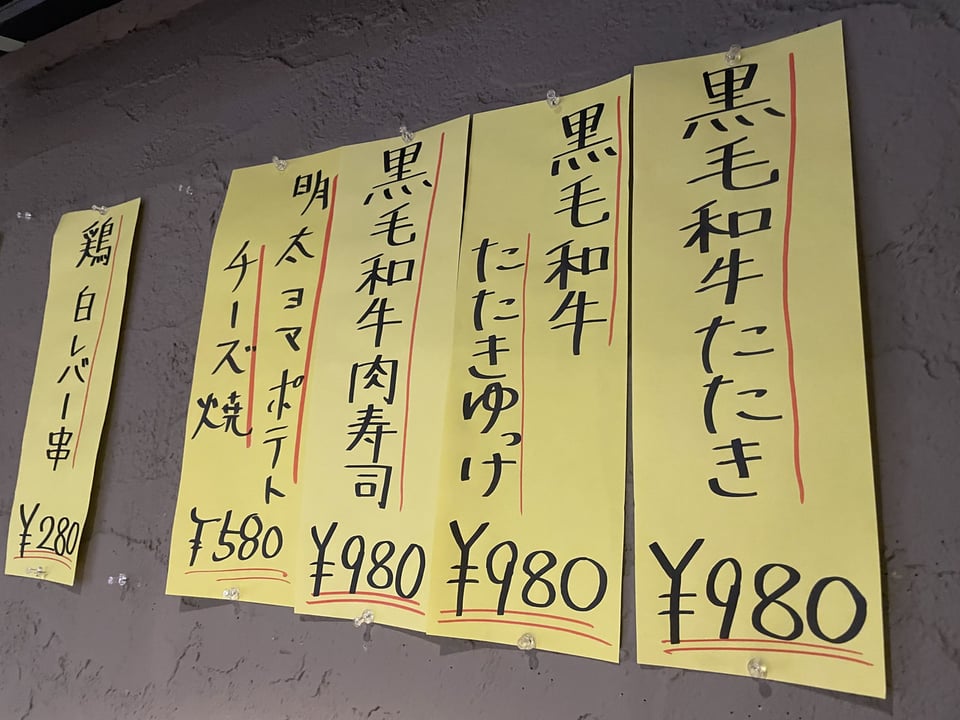 黒毛和牛たたき
¥980
黒毛和牛
たたきゆっけ
¥980
黒毛和牛肉寿司
¥980
明太ヨマポテト
チーズ焼
¥580
鶏白レバー串
¥280